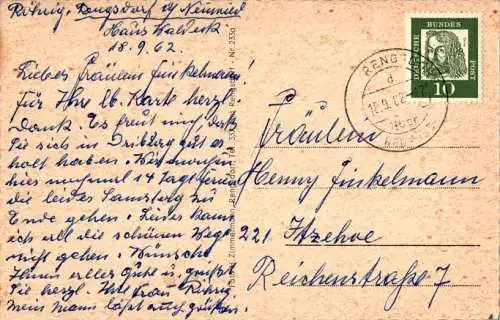 Röhrig, Rengsdorf üb/Neuwied
Haus Waldeck
18.9.62
Liebes Fräulein Finkelmann!
Für Ihre lb. Karte herzl.
Dank. Es freut mich daß
Sie sich in Driburg gut er-
holt haben. Wir
hier nochmal 14 Tage
die leider Samstag zu
Ende gehen. Leider kann
ich all die schönen Wege
nicht gehen. Wünsche
Ihnen alles Gute u. grüßt
Sie herzl. Ihre Frau Röhrig
Mein Mann läßt auch grüßen.
Zimmermann, Rengsdorf Nr. 233a
DEUTSCHE BUNDESPOST
10
RENGSDORF
d
18.9.62
Fräulein
Henny Finkelmann
221. Itzehoe
Reichenstraße 7